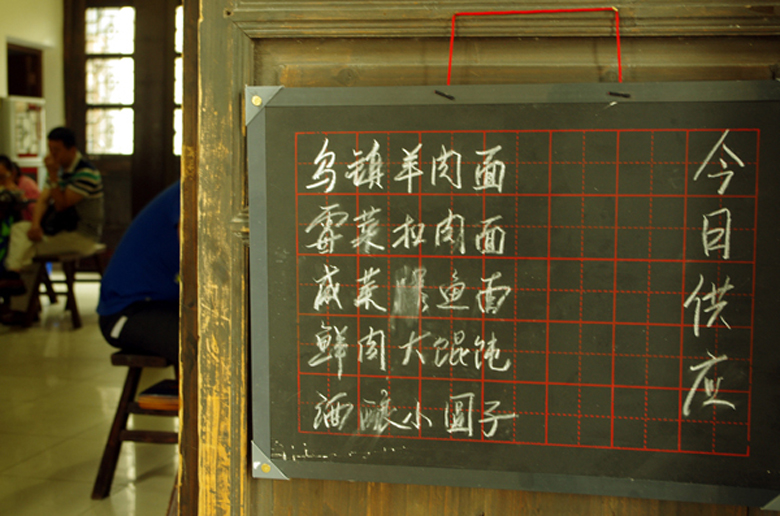 今日供应
乌镇羊肉面
霉菜扣肉面
咸菜鱼面
鲜肉大馄饨
酒酿小圆子